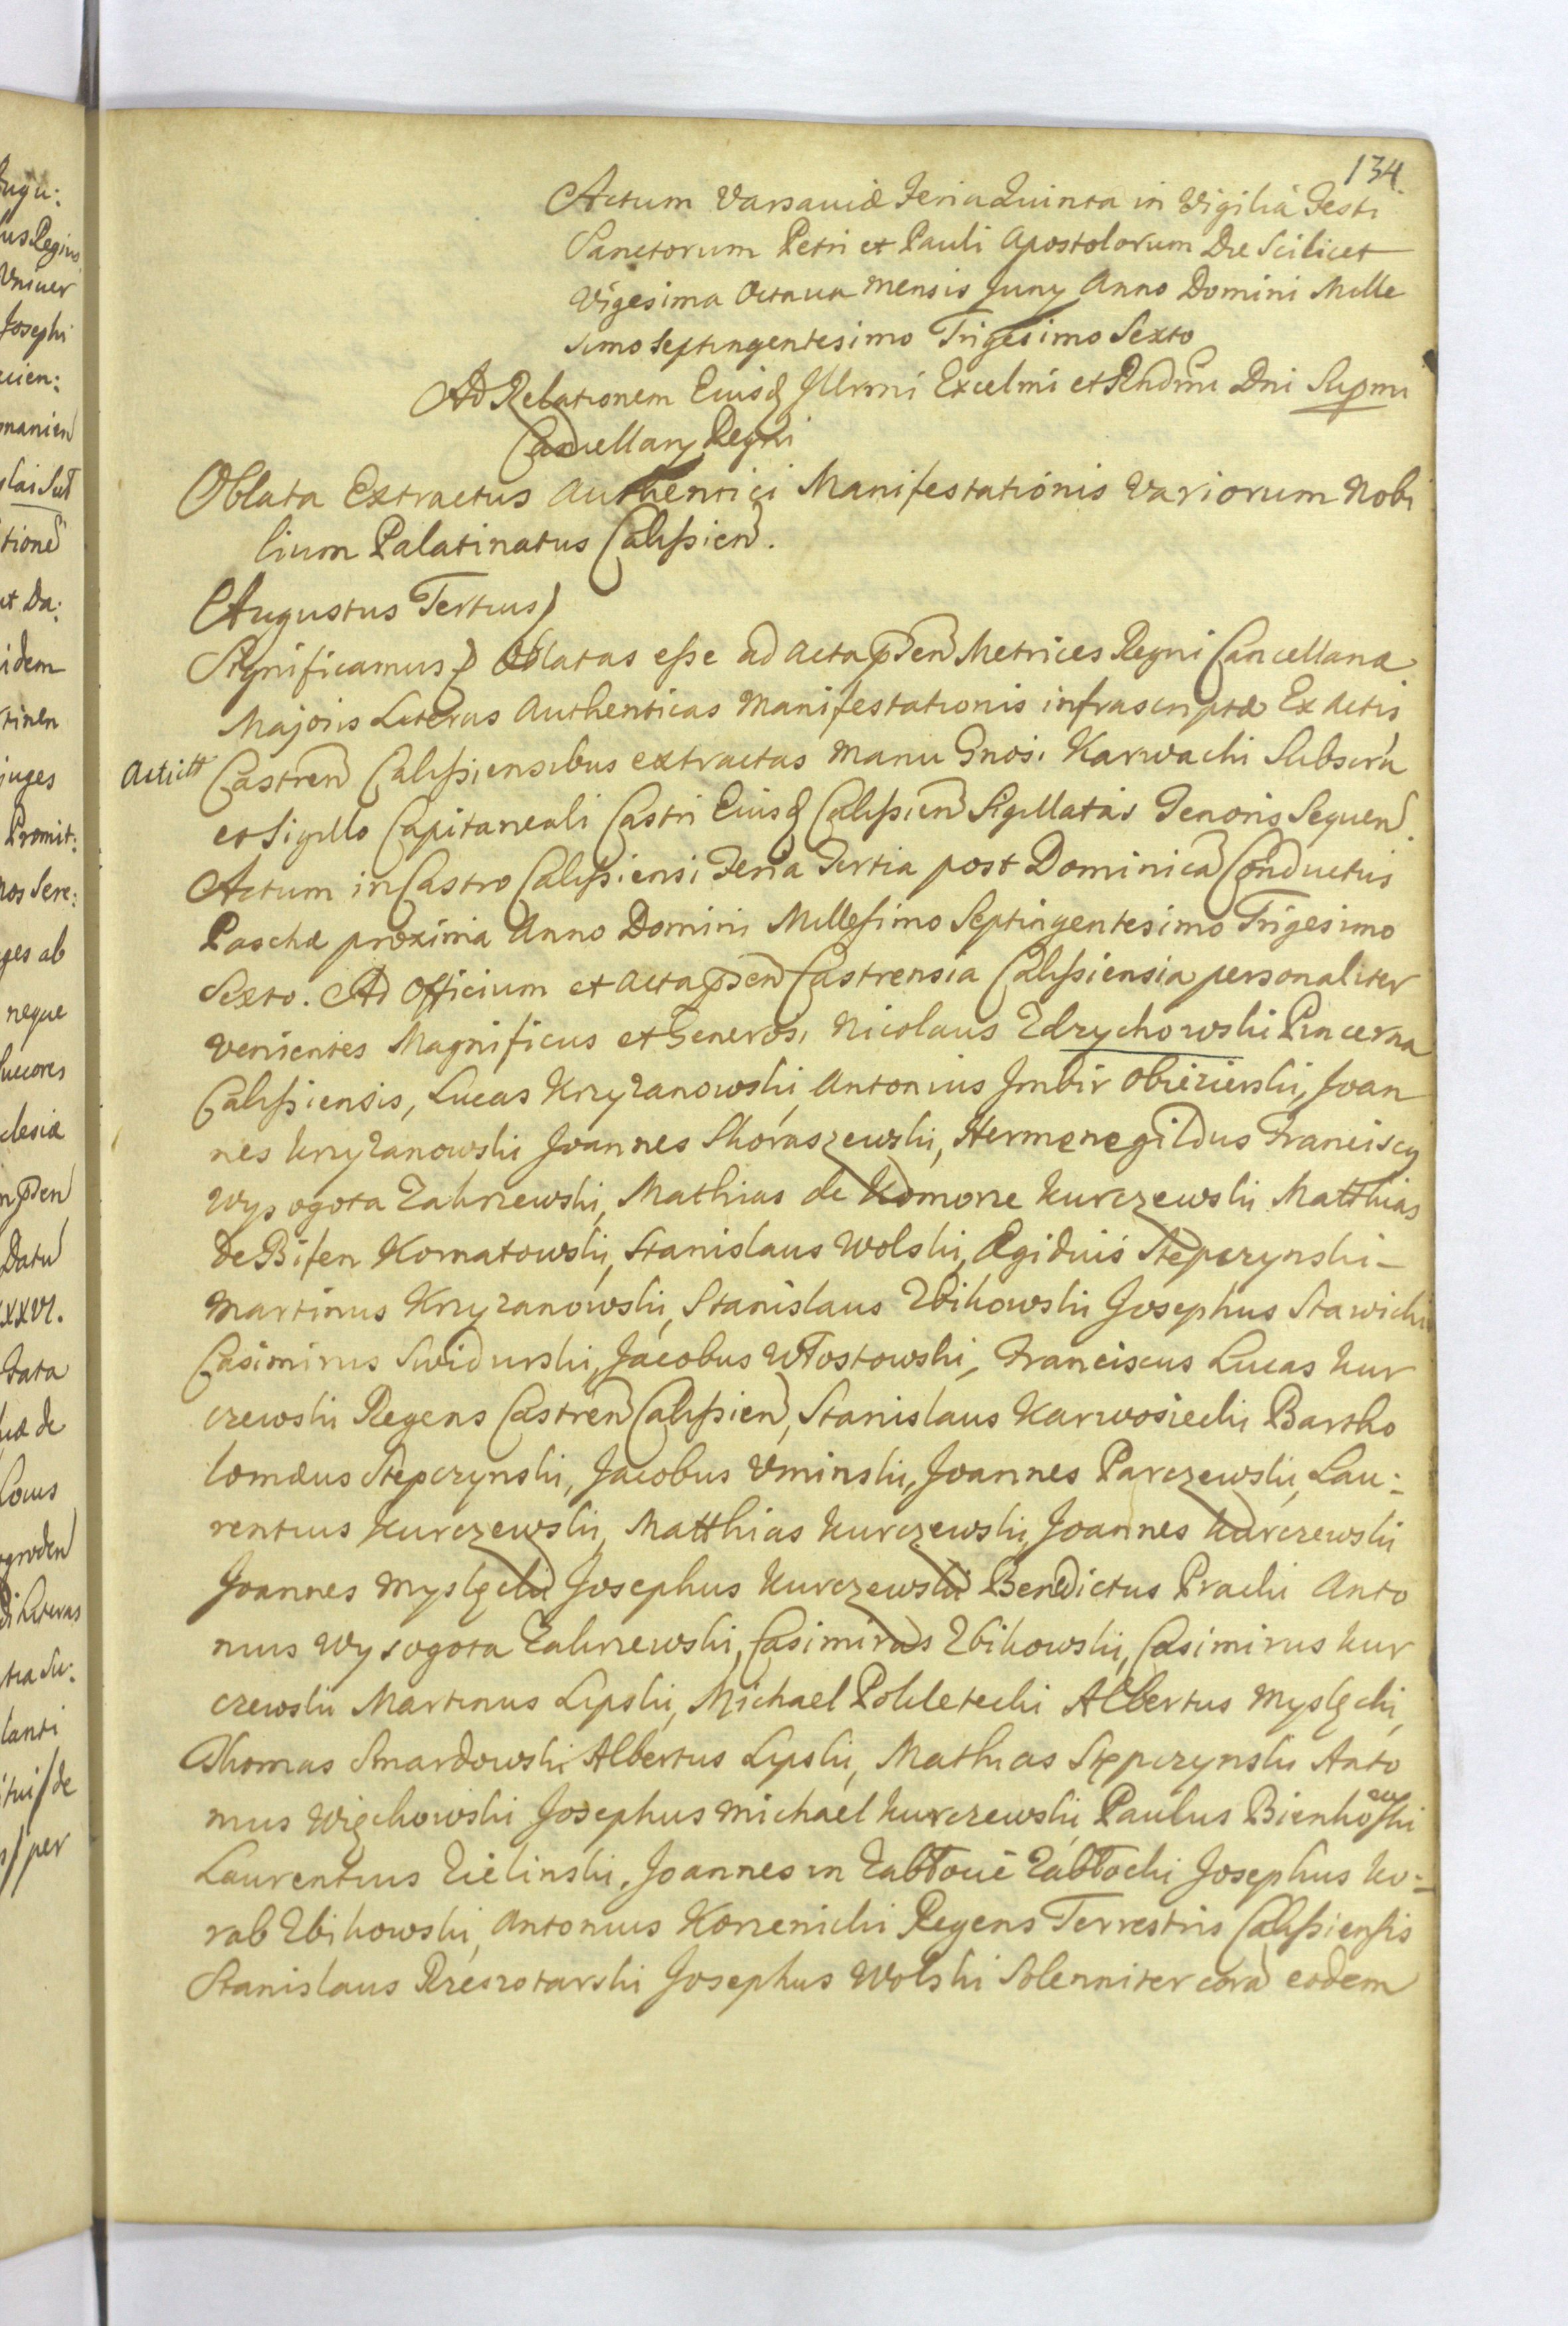 134.
Actum Varsaviæ Feria Quinta in Vigilia Festi
Sanctorum Petri et Pauli Apostolorum Die Scilicet
Vigesima Octava Mensis Juny Anno Domini Mille
simo Septingentesimo Trigesimo Sexto
Ad Relationem Eiusd Illrmi Excelmi et Rndmi Dni Supmi
Cancellary Regni
Oblata Extractus Authentici Manifestationis Variorum Nobi
lium Palatinatus Calissien.
Augustus Tertius)
Significamus) Oblatas esse ad Acta psen Metrices Regni Cancellariæ
Majoris Literas Authenticas Manifestationis infrascriptæ Ex Actis
Actictt Castren Calissiensibus extractas manu Gnosi Karwachi Subscra
et Sigillo Capitaneali Castri Eiusd Calissien Sigillatas Tenoris Sequen.
Actum in Castro Calissiensi Feria Tertia post Dominica Conductus
Paschæ proxima Anno Domini Millesimo Septingentesimo Trigesimo
Sexto. Ad Officium et Acta psen Castrensia Calissiensia personaliter
venientes Magnificus et Generosi Nicolaus Zdrychowski Pincerna
Calissiensis, Lucas Krzyzanowski, Antonius Jmbir Obiezierski, Joan
nes Krzyzanowski Joannes Skoraszewski, Hermenegildus Franciscq
Wyssogota Zakrzewski, Mathias de Komorze Kurczewski Matthias
de Bifen Kornatowski, Stanislaus Wolski, Ægidius Stępczynski –
Martinus Krzyzanowski, Stanislaus Zbikowski Josephus Stawicki
Casimirus Swidurski, Jacobus Włostowski, Franciscus Lucas Kur
czewski Regens Castren Calissien, Stanislaus Karwosiecki Bartho
lomæus Stępczynski, Jacobus Uminski, Joannes Parczewski, Lau:
rentius Kurczewski, Matthias Kurczewski, Joannes Kurczewski
Joannes Myslęcki Josephus Kurczewski Benedictus Pracki Anto
nius Wyssogota Zakrzewski, Casimirus Zbikowski, Casimirus Kur
czewski Martinus Lipski, Michael Pokletecki Albertus Myslęcki,
Thomas Smardowski Albertus Lipski, Mathias Stępczynski Anto
nius Więckowski Josephus Michael Kurczewski, Paulus Bienkowski
Laurentius Zielinski, Joannes in Zabłocie Zabłocki Josephus Ko:
rab Zbikowski, Antonius Korzenicki Regens Terrestris Calissiensis
Stanislaus Przeszotarski Josephus Wolski Solenniter cora eodem